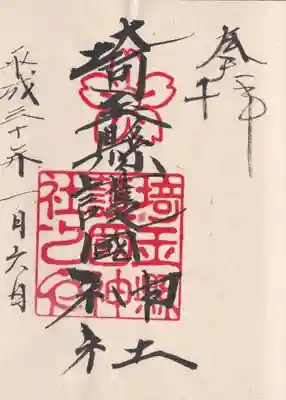 奉拝
埼玉縣護國神社
平成三十年一月六日
埼玉縣護國神社之印